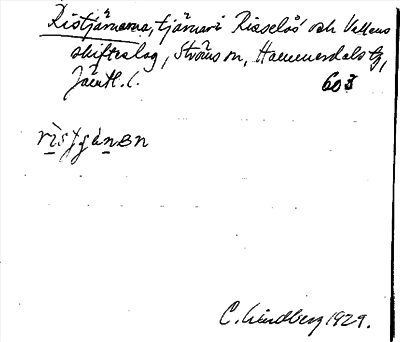 Ristjärnarna, tjärnar i Risselås och Vallens
skifteslag, Ströms sn, Hammerdals tg,
Jämtl. l. 603
C. Lindberg 1929.